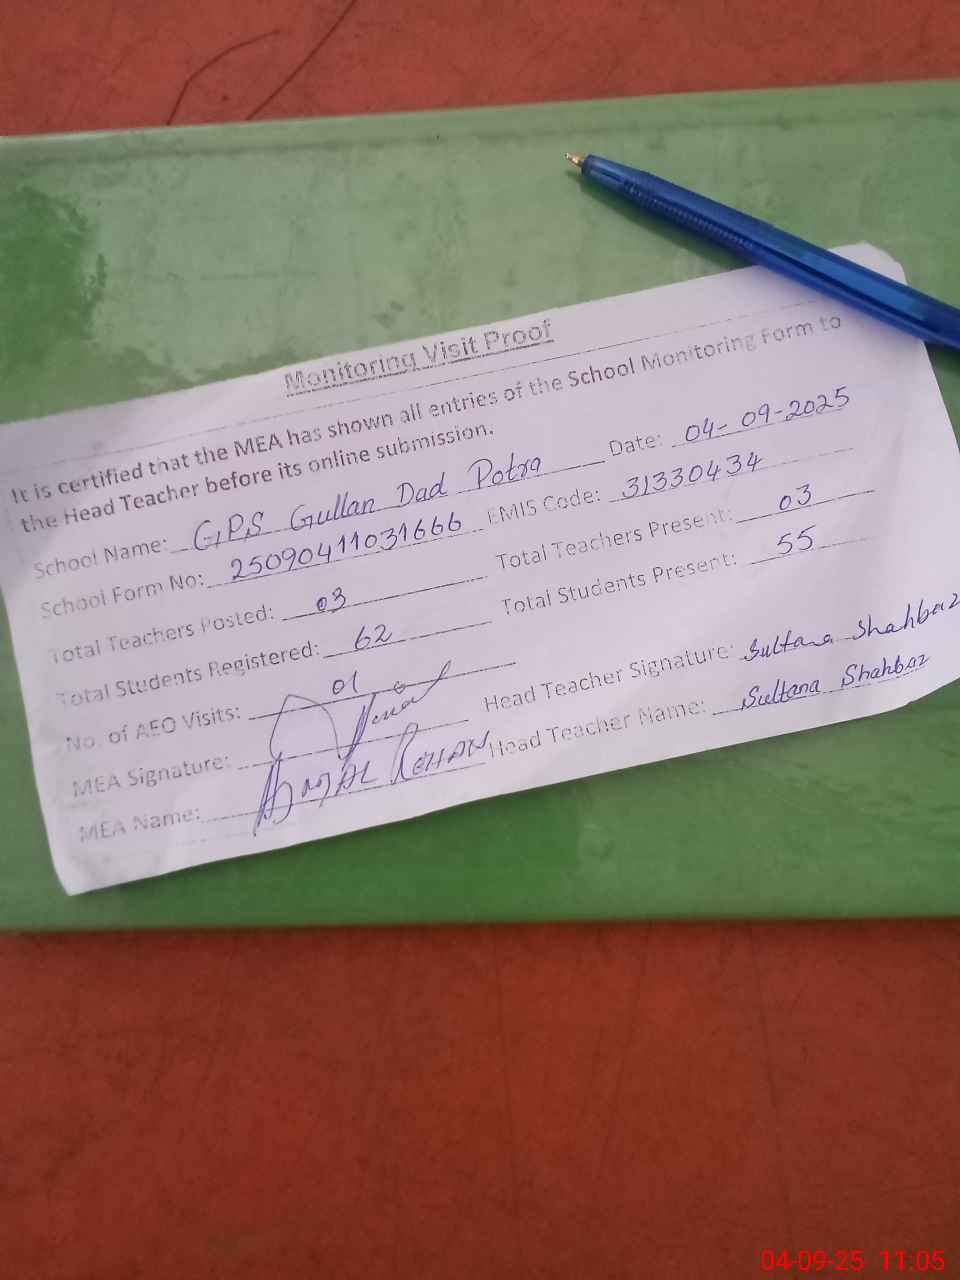 Monitoring Visit Proof
It is certified that the MEA has shown all entries of the School Monitoring Form to
the Head Teacher before its online submission.
School Name: GPS Gullan Dad Potra Date: 04-09-2025
School Form No: 25090411031666 EMIS Code: 31330434
Total Teachers Posted: 03 Total Teachers Present: 03
Total Students Registered: 62 Total Students Present: 55
No. of AEO Visits: 01
MEA Signature: Head Teacher Signature: Sultana Shahbaz
MEA Name: Head Teacher Name: Sultana Shahbaz
04-09-25 11:05